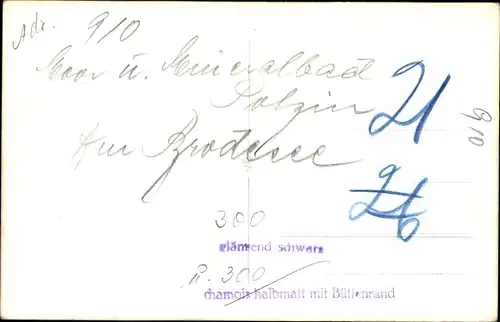 Adr. 910
Moor u. Mineralbad
Polzin
Am Brodesee
21
910
26
300
glänzend schwarz
u. 300
chamois halbmatt mit Büttenrand